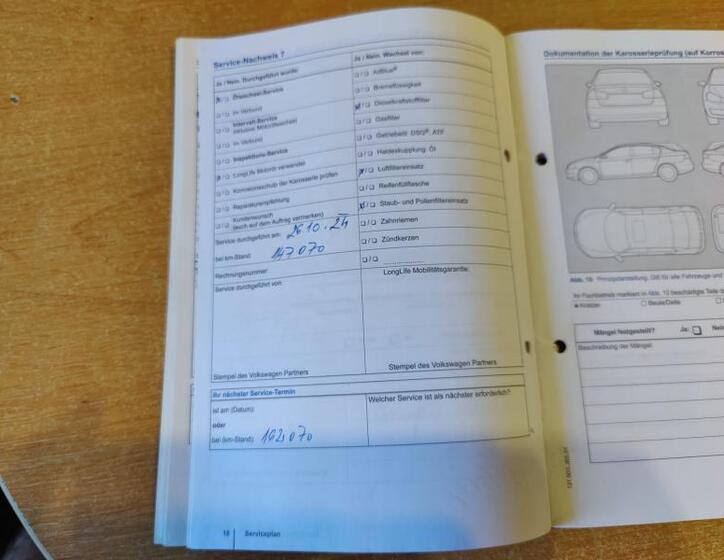 Service-Nachweis 7
Ja / Nein. Durchgeführt wurde:
Zwischen-Service
im Verbund
Intervall-Service
inklusive Motorölwechsel
im Verbund
Inspektions-Service
LongLife Motoröl verwendet
Korrosionsschutz der Karosserie prüfen
Reparaturempfehlung
Kundenwunsch
(auch auf dem Auftrag vermerken)
Service durchgeführt am: 26.10.24
bei km-Stand: 147070
Rechnungsnummer:
Service durchgeführt von:
Stempel des Volkswagen Partners
Ja / Nein. Wechsel von:
AdBlue®
Bremsflüssigkeit
Dieselkraftstofffilter
Gasfilter
Getriebeöl: DSG®, ATF
Haldexkupplung: Öl
Luftfiltereinsatz
Reifenfüllflasche
Staub- und Pollenfiltereinsatz
Zahnriemen
Zündkerzen
LongLife Mobilitätsgarantie:
Stempel des Volkswagen Partners
Ihr nächster Service-Termin
ist am (Datum):
oder
bei (km-Stand): 162070
Welcher Service ist als nächster erforderlich?
18 Serviceplan
Dokumentation der Karosserieprüfung (auf Korros
Abb. 10 Prinzipdarstellung: Gilt für alle Fahrzeuge und
Ihr Fachbetrieb markiert in Abb. 10 beschädigte Teile d
Kratzer
Beule/Delle
Mängel festgestellt? Ja: Nein
Beschreibung der Mängel: